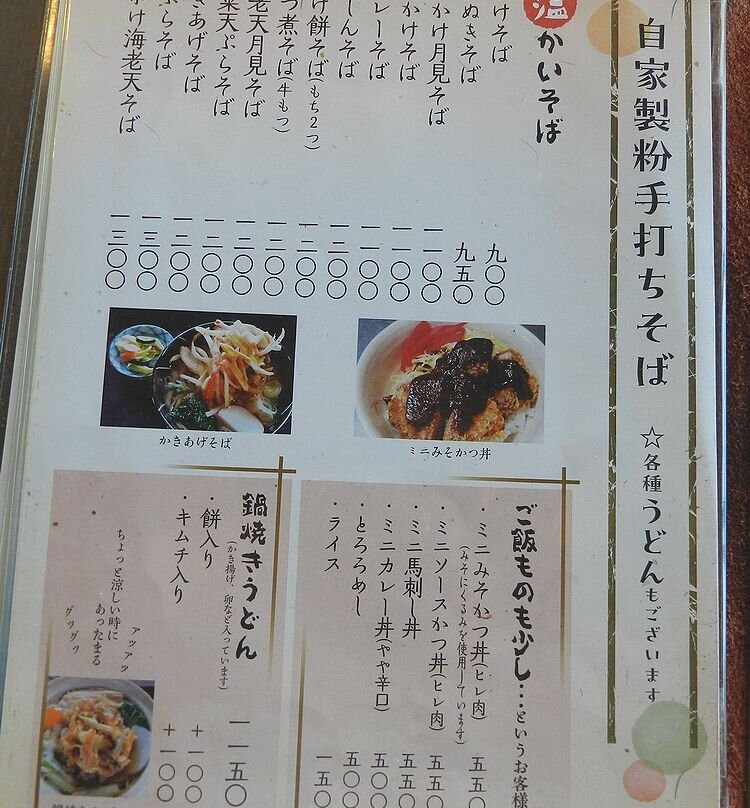 自家製粉手打ちそば ☆各種うどんもございます
温かいそば
けそば 九〇〇
ぬきそば 九五〇
かけ月見そば 一一〇〇
かけそば 一一〇〇
レーそば 一一〇〇
しんそば 一二〇〇
け餅そば(もち2つ) 一二〇〇
つ煮そば(牛もつ) 一二〇〇
老天月見そば 一二〇〇
菜天ぷらそば 一二〇〇
きあげそば 一二〇〇
ぷらそば 一三〇〇
け海老天そば 一三〇〇
ミニみそかつ丼
かきあげそば
ご飯ものも少し…というお客様
・ミニみそかつ丼(ヒレ肉) 五五〇
(みそにくるみを使用しています)
・ミニソースかつ丼(ヒレ肉) 五五〇
・ミニ馬刺し丼 五五〇
・ミニカレー丼(やや辛口) 五〇〇
・とろろめし 五〇〇
・ライス 一五〇
鍋焼きうどん 一一五〇
(かき揚げ、卵など入っています)
・餅入り +一〇〇
・キムチ入り +一〇〇
アツアツ
ちょっと涼しい時に
あったまる
グツグツ